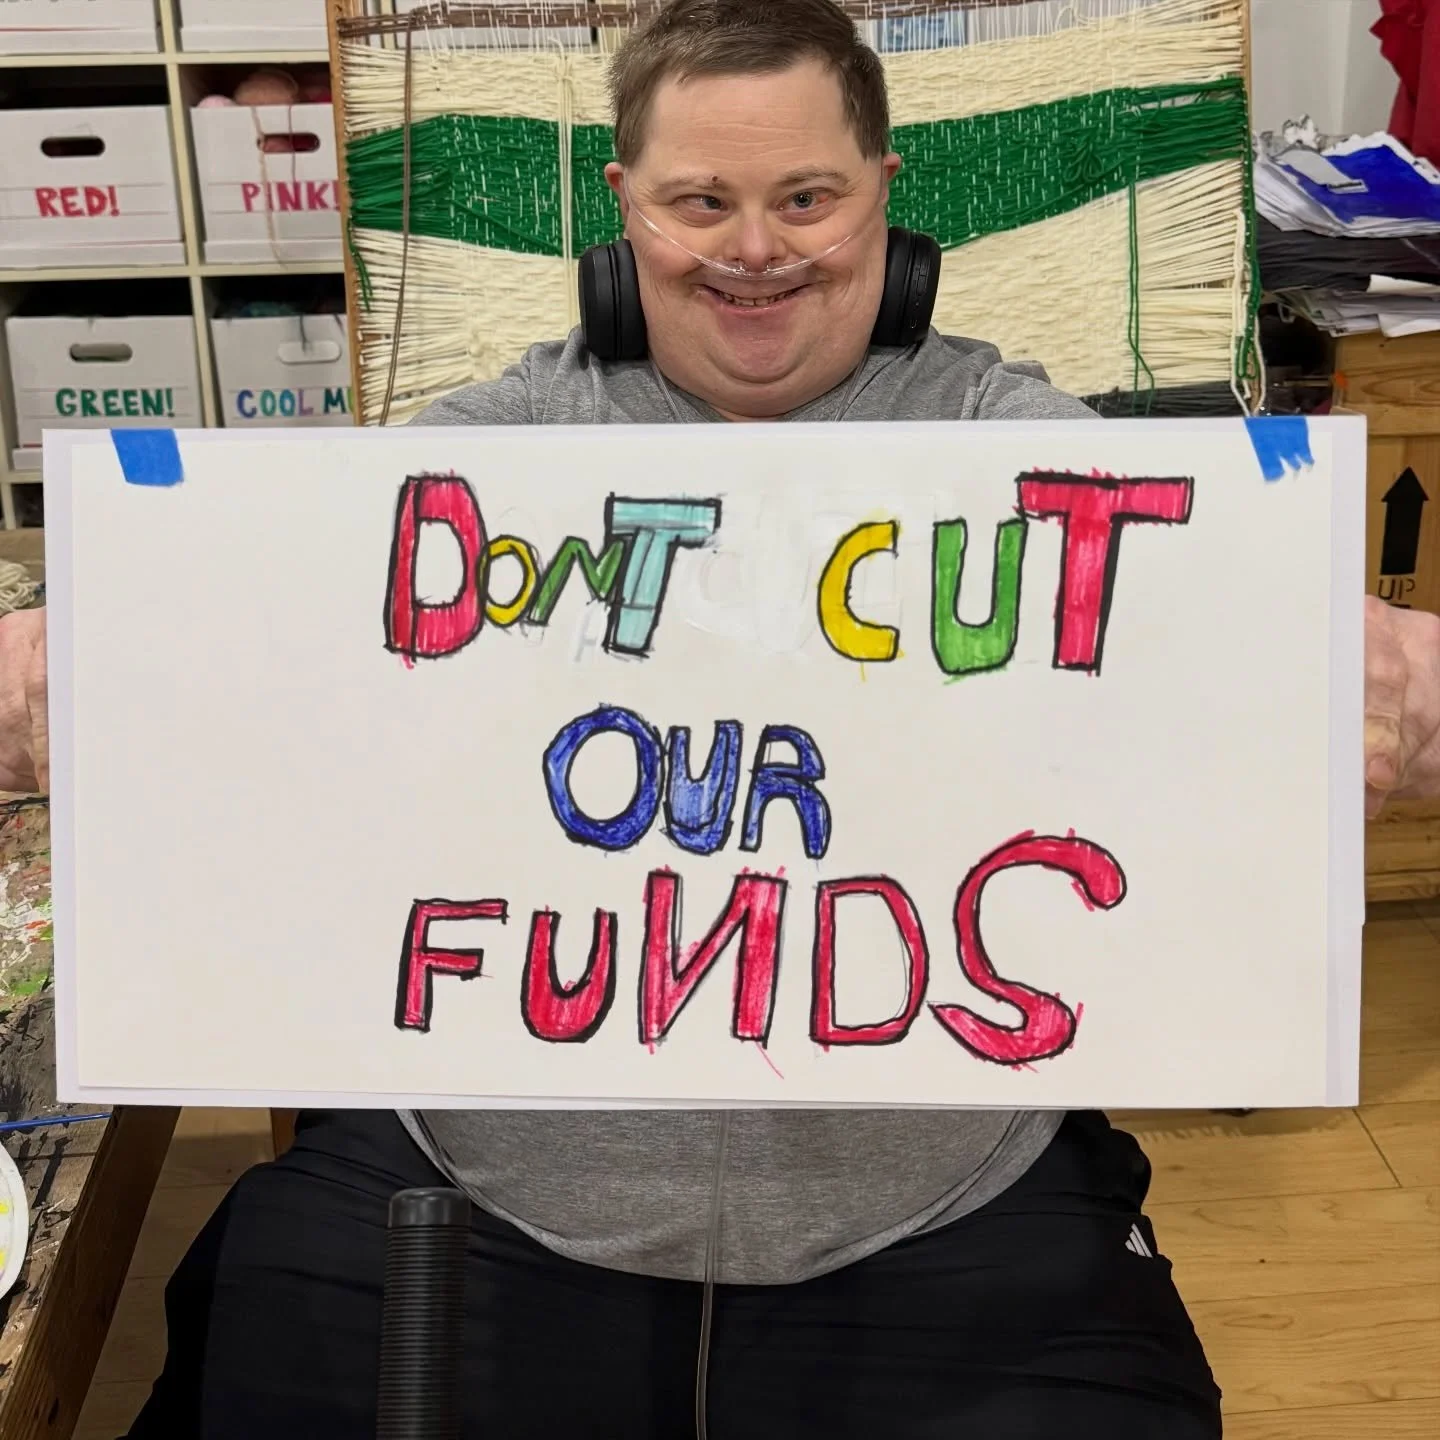 RED!
PINK!
GREEN!
COOL M
DONT CUT
OUR
FUNDS
UP